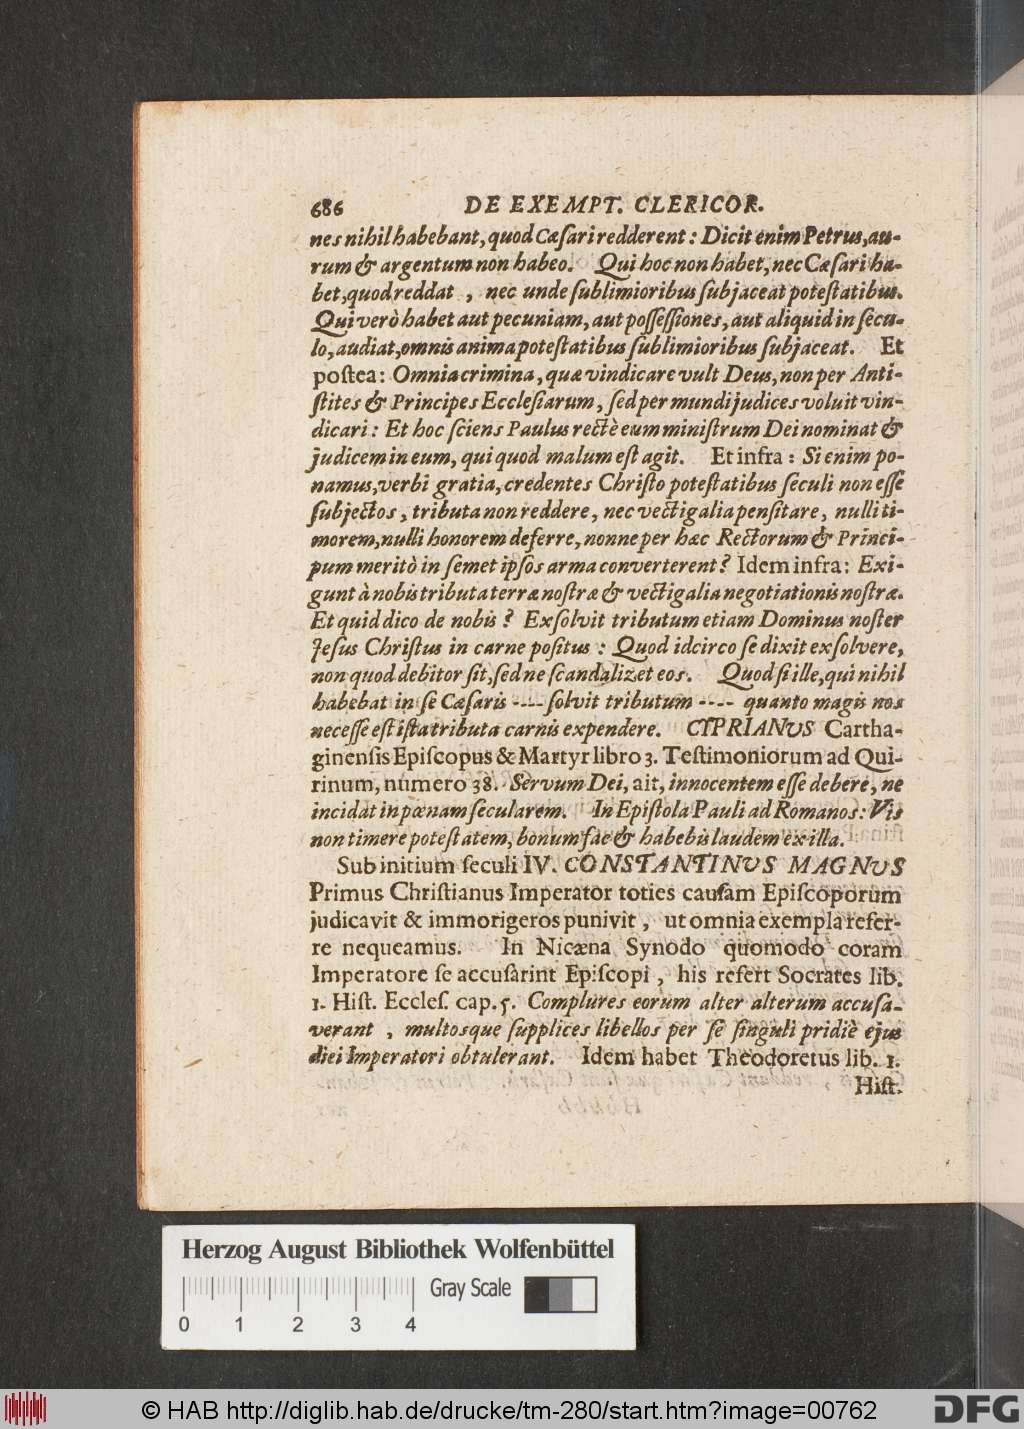 686 DE EXEMPT. CLERICOR.
nes nihil habebant, quod Cæsari redderent : Dicit enim Petrus, au-
rum & argentum non habeo. Qui hoc non habet, nec Cæsari ha-
bet, quod reddat , nec unde ſublimioribus ſubjaceat poteſtatibus.
Qui verò habet aut pecuniam, aut poſſeſſiones, aut aliquid in ſecu-
lo, audiat, omnis anima poteſtatibus ſublimioribus ſubjaceat. Et
poſtea: Omnia crimina, quæ vindicare vult Deus, non per Anti-
ſtites & Principes Eccleſiarum, ſed per mundi judices voluit vin-
dicari : Et hoc ſciens Paulus rectè eum miniſtrum Dei nominat &
judicem in eum, qui quod malum eſt agit. Et infra : Si enim po-
namus, verbi gratia, credentes Chriſto poteſtatibus ſeculi non eſſe
ſubjectos, tributa non reddere, nec vectigalia penſitare, nulli ti-
morem, nulli honorem deferre, nonne per hæc Rectorum & Princi-
pum meritò in ſemet ipſos arma converterent? Idem infra: Exi-
gunt à nobis tributa terræ noſtræ & vectigalia negotiationis noſtræ.
Et quid dico de nobis ? Exſolvit tributum etiam Dominus noſter
Jeſus Chriſtus in carne poſitus : Quod idcirco ſe dixit exſolvere,
non quod debitor ſit, ſed ne ſcandalizet eos. Quod ſi ille, qui nihil
habebat in ſe Cæſaris ---- ſolvit tributum ---- quanto magis nos
neceſſe eſt iſta tributa carnis expendere. CYPRIANUS Cartha-
ginenſis Epiſcopus & Martyr libro 3. Teſtimoniorum ad Qui-
rinum, numero 38. Servum Dei, ait, innocentem eſſe debere, ne
incidat in pœnam ſecularem. In Epiſtola Pauli ad Romanos: Vis
non timere poteſtatem, bonum fac & habebis laudem ex illa.
Sub initium ſeculi IV. CONSTANTINUS MAGNUS
Primus Chriſtianus Imperator toties cauſam Epiſcoporum
judicavit & immorigeros punivit , ut omnia exempla refer-
re nequeamus. In Nicæna Synodo quomodo coram
Imperatore ſe accuſarint Epiſcopi , his refert Socrates lib.
1. Hiſt. Eccleſ. cap. 5. Complures eorum alter alterum accuſa-
verant , multosque ſupplices libellos per ſe ſinguli pridiè ejus
diei Imperatori obtulerant. Idem habet Theodoretus lib. 1.
Hiſt.
Herzog August Bibliothek Wolfenbüttel
Gray Scale
0 1 2 3 4
© HAB http://diglib.hab.de/drucke/tm-280/start.htm?image=00762
DFG